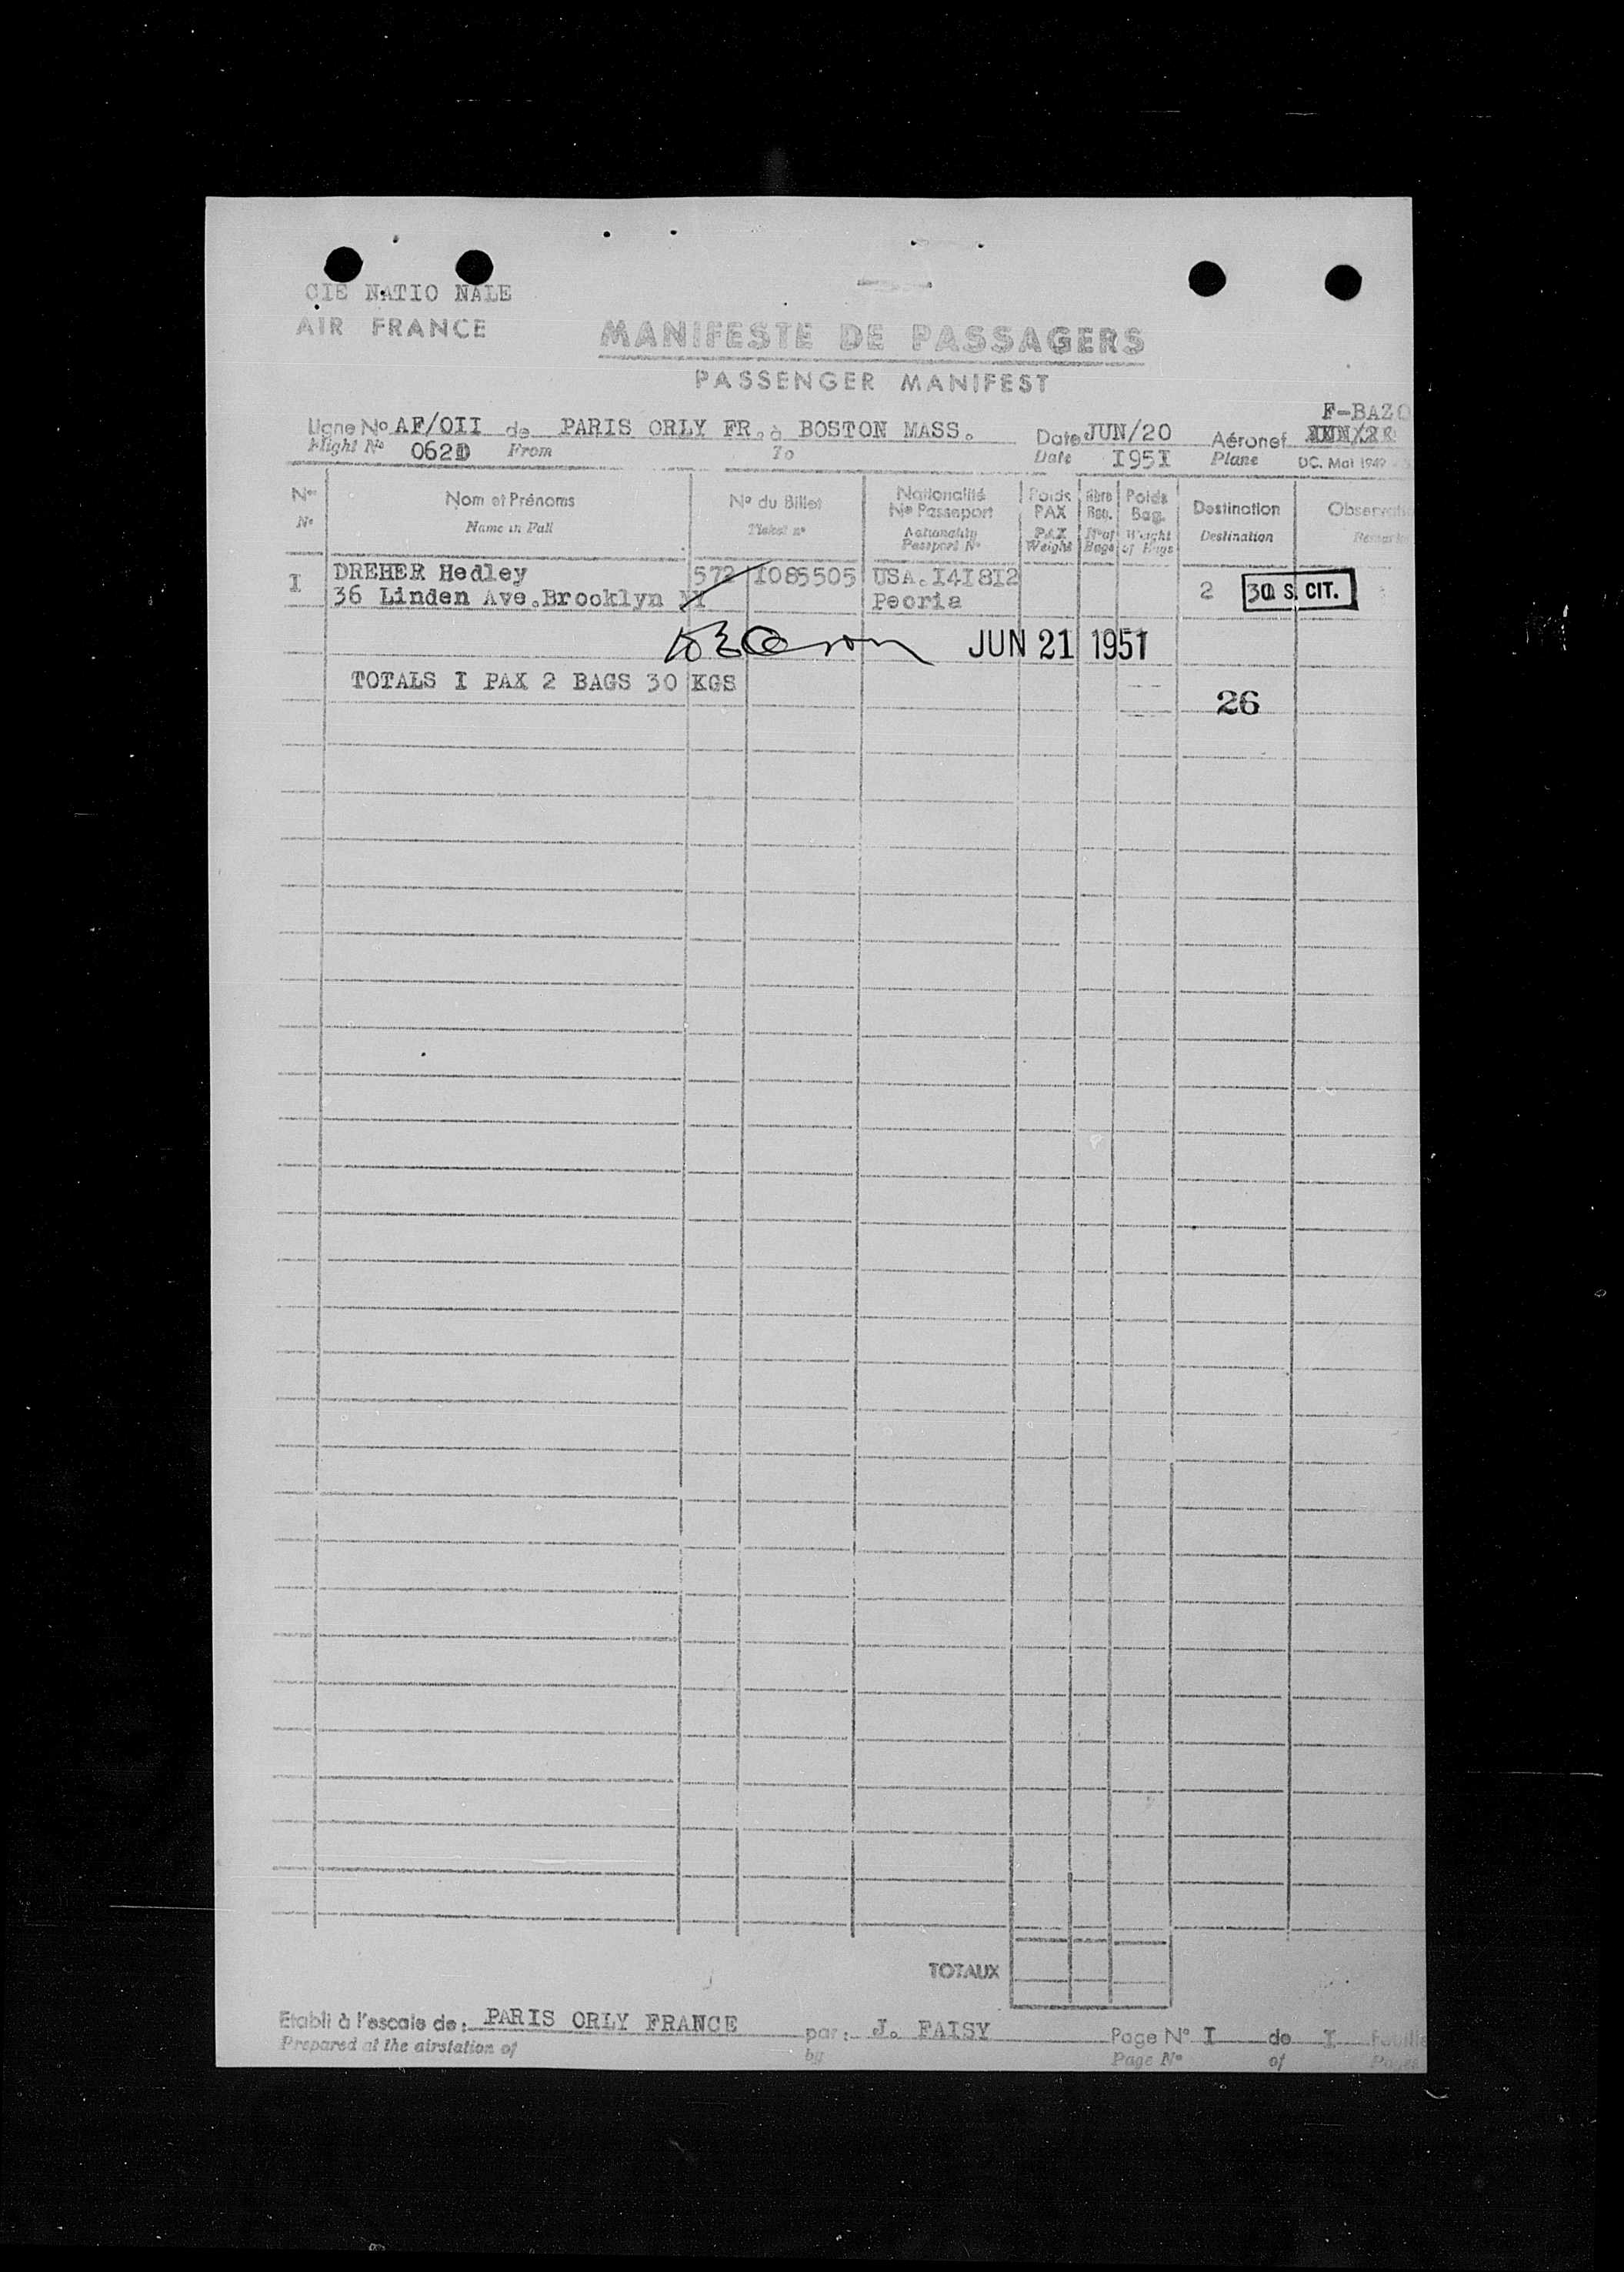 CIE NATIO NALE
AIR FRANCE
MANIFESTE DE PASSAGERS
PASSENGER MANIFEST
F-BAZO
Ligne No AF/OII de PARIS ORLY FR. à BOSTON MASS. Date JUN/20 Aéronef
Flight No 062D From To Date I95I Plane DC. Mai 1949
Nos Nom et Prénoms No du Billet Nationalité No Passeport Poids PAX Nbre Bag. Poids Bag. Destination Observati
No Name in Full Ticket no Nationality Passport No PAX Weight No of Bags Weight of Bags Destination Remarks
I DREHER Hedley 572 I085505 USA.I4I8I2 2 30 S. CIT.
36 Linden Ave.Brooklyn NY Peoria
JUN 21 1951
TOTALS I PAX 2 BAGS 30 KGS
26
TOTAUX
Etabli à l'escale de: PARIS ORLY FRANCE par: J. FAISY Page No I de I Feuille
Prepared at the airstation of by Page No of Pages